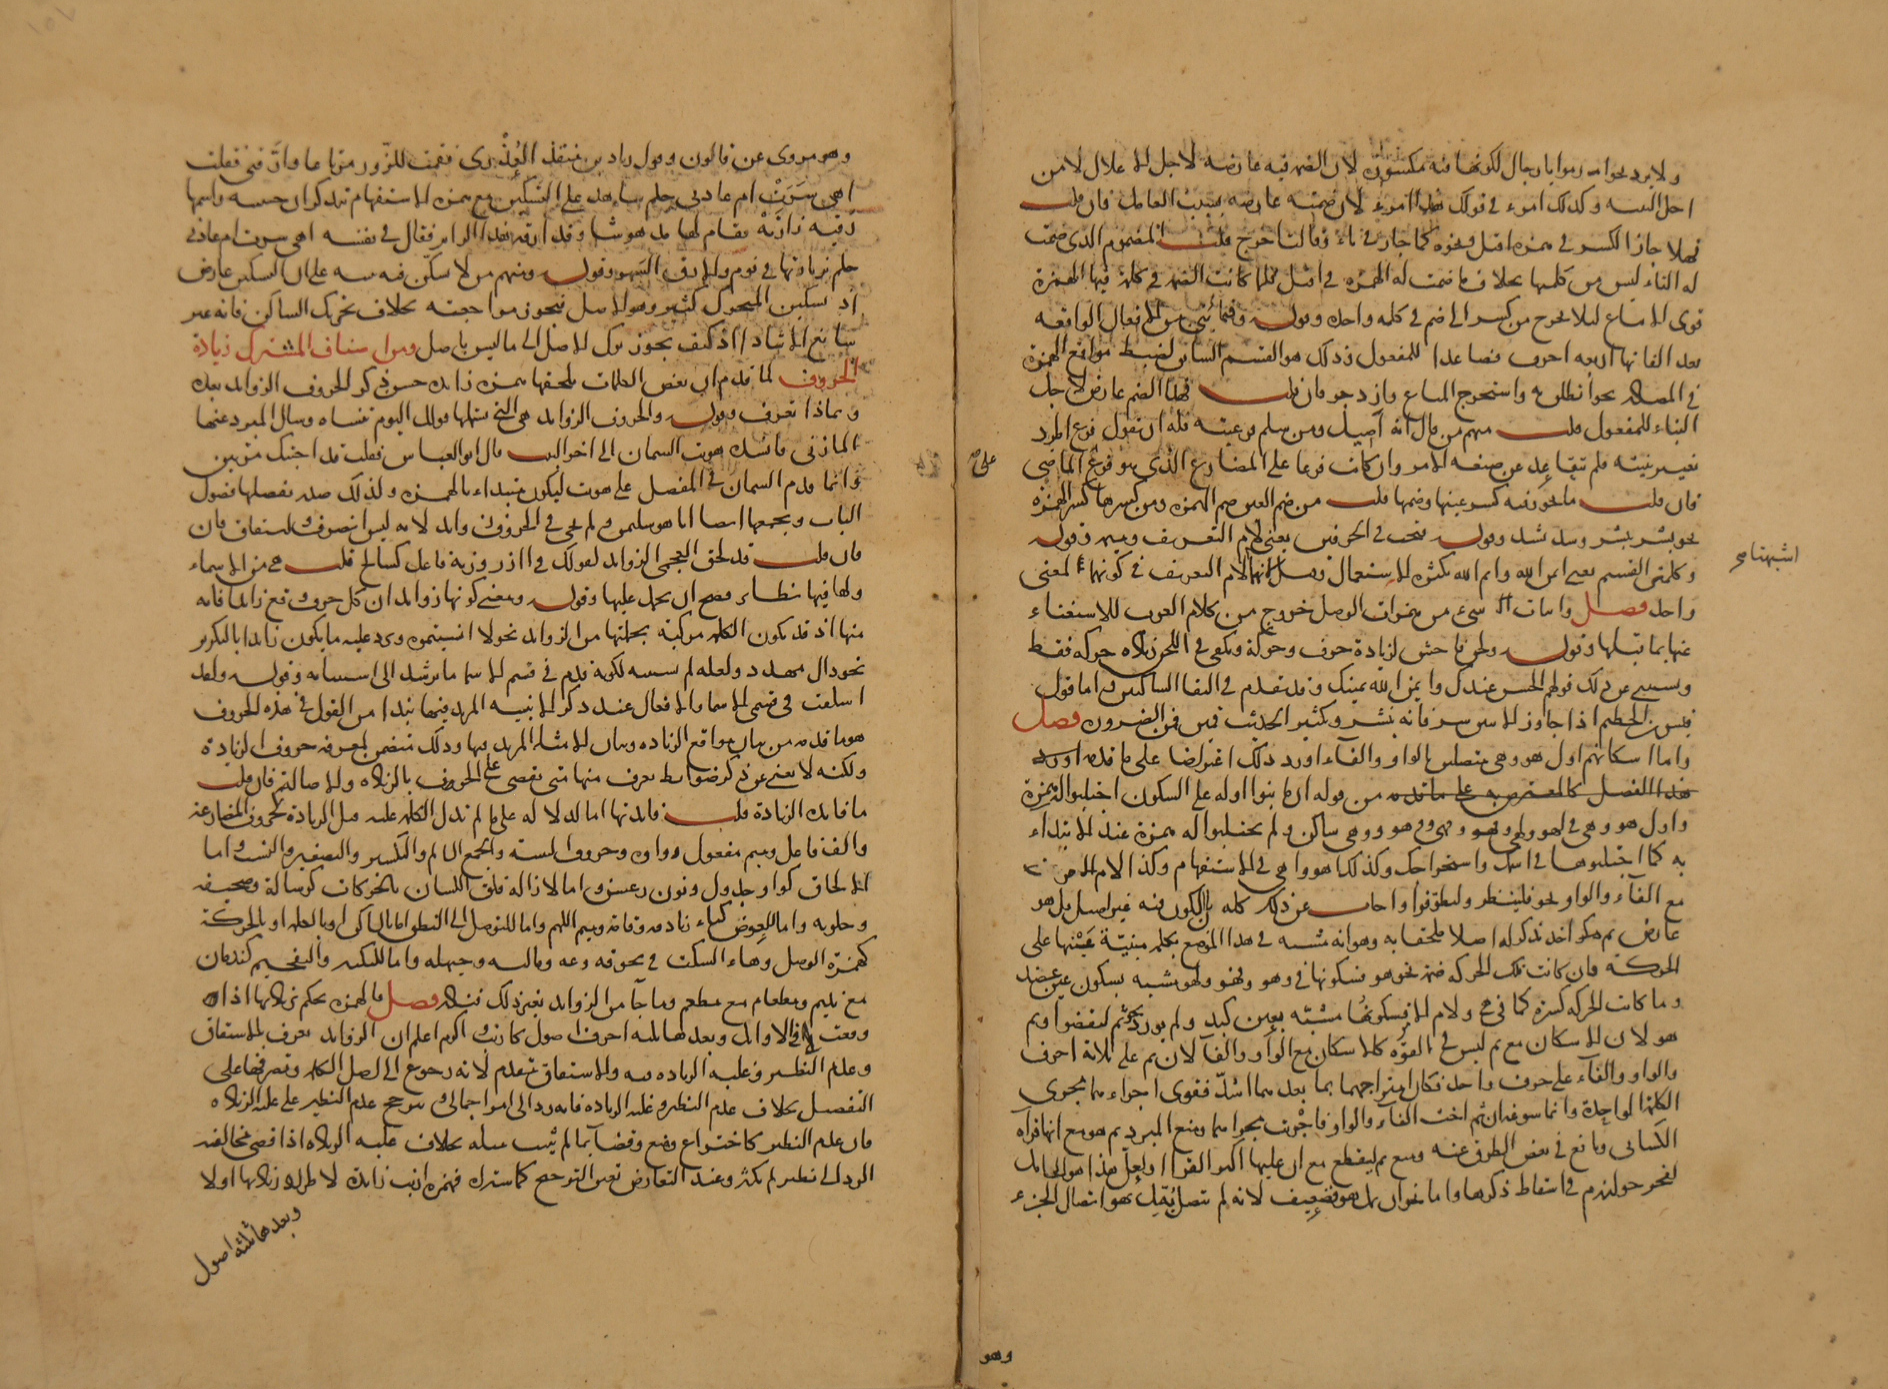 ولا يرد نحو امرموا يا رجال لكونها فيه مكسورة لان الضمة فيه عارضة لاجل الاعلال لا من
اصل البنية وكذلك امرء في قولك هذا امرء لان ضمته عارضة بسبب العامل فان قلت
فهلا جاز الكسر في همزه اقتل ونحوه كما جاز في تاء وقالت اخرج قلت المضموم الذي ضمت
له التاء ليس من كلمتها بخلاف ما ضمت له الهمزه في اقتل فلما كانت الضمة في كلمة فيها الهمزة
قوى الاتباع لئلا يخرج من كسر الى ضم في كلمه واحدة وقوله وفيما بني من الافعال الواقعه
بعد الفاتها اربعه احرف فصاعدا للمفعول وذلك هو القسم السادس لضبط مواقع الهمزة
في المصادر نحو انطلق به واستخرج المتاع وازدوجو فان قلت فهذا الضم عارض لاجل
البناء للمفعول قلت منهم من قال انه اصيل ومن سلم فرعيته فله ان يقول فرع المجرد
تغيير بنيته فلم تتقاعد عن صيغه الامر وان كانت فرعا على المضارع الذي هو فرع الماضي
على
فان قلت ما نحو فيه كسر عينها وضمها قلت من ضم العين ضم الهمزه ومن كسرها كسر الهمزة
نحو بشر بشر وشد شد وقوله فتحت في الحرفين يعني لام التعريف وميمه وقوله
وكلمتي القسم يعني ايمن الله وايم الله لكثرة الاستعمال وقيل انهما لام التعريف في كونهما لمعنى
اشبهتا
واحد فصل واثبات شيء من همزات الوصل خروج من كلام العرب للاستغناء
عنها بما قبلها وقوله ولحن فاحش لزيادة حرف وحركة ويكفي في اللحن زيادة حركه فقط
ويستثنى عن ذلك قولهم الحسن عندك وايمن الله يمينك وقد تقدم في التقا الساكنين واما قول
قيس بن الخطيم اذا جاوز الاثنين سر فانه بنشر وتكثير الحديث قمين فمن الضرورة فصل
واما اسكانهم اول هو وهي متصلين بالواو والفاء اورد ذلك اعتراضا على ما قدمه
هذا الفصل كالمعترض به على ما قدمه من قوله ان بنوا اوله على السكون اجتلبوا الهمزة
واول هو وهي في لهو ولهي وهو وهي وفهو وفهي ساكن ولم يجتلبوا له همزة عند الابتداء
به كما اجتلبوها في اسمك واستخراجك وكذلك اهو واهي في الاستفهام وكذا لام الامر
مع الفاء والواو نحو فلينظر وليطوفوا واجاب عن ذلك كله بان السكون فيه غير اصيل بل هو
عارض ثم هكو اخذ تذكر له اصلا ملحقا به وهو انه تشبيه في هذا الموضع بكلمه مبنية عينها على
الحركة فان كانت تلك الحركه ضمة نحو هو فسكونها في وهو وفهو ولهو مشبه بسكون عين عضد
وما كانت الحركه كسرة كما في هي ولام الامر فسكونها مشبه بعين كبد ولم يورد نحو ثم ليقضوا وثم
هو لان الاسكان مع ثم ليس في القوة كالاسكان مع الواو والفاء لان ثم على ثلاثة احرف
والواو والفاء على حرف واحد فكان امتزاجهما بما بعدهما اشد فقوى اجراءهما مجرى
الكلمة الواحدة وانما سوغه ان ثم اخت الفاء والواو فاجريت مجراهما ومنع المبرد ثم هو مع انها قراة
الكسائي ونافع في بعض الطرق عنه ومنع ثم ليقطع مع ان عليها اكثر القراء ولعل هذا هو الحامل
لفخر خوارزم في اسقاط ذكرها واما نحو ان يمل هو فضعيف لانه لم يتصل بقبل هو اتصال الجزء
وهو
وهو مروى عن قالون وقول زياد بن منقذ العدوي فقمت للزور مرتاعا وارقني فقلت
اهي سرت ام عادني حلم شاهد على التسكين مع همزه الاستفهام تذكر ان حبيبته واسمها
رقية زارته فقام لها مدهوشا وقد ارقه هذا الزاير فقال في نفسه اهي سرت ام عادني
حلم بزيارتها في نوم والارق السهر وقوله ومنهم من لا يسكن فيه تنبيه على ان السكين عارض
اذ تسكين المتحرك كثير وهو الاصل فتجوز مراجعته بخلاف تحريك الساكن فانه غير
سايغ الانقياد اذ كيف يجوز ترك الاصل الى ما ليس باصل ومن اصناف المشترك زيادة
الحروف لما تقدم ان بعض الكلمات تلحقها همزه زايدة حسن ذكر الحروف الزوايد بعده
وبماذا تعرف وقوله والحروف الزوايد هي التي يشملها قولك اليوم تنساه وسال المبرد عنها
المازني فانشده هويت السمان الى اخر البيت فقال ابو العباس فقلت قد اجبتك مرتين
وانما قدم السمان في المفصل على هويت ليكون مبتداء بالهمزه ولذلك صدر تفصيلها فصول
الباب ويجمعها ايضا اتاه وسليمن ولم نجئ في الحروف زايد لانه ليس بتصرف واشتقاق فان
فان قلت قد لحق العجمي الزوايد كقولك في آزر وزنه فاعل كسالم قلت هي من الاسماء
ولها فيها نظاير فصح ان يحمل عليها وقوله ومعنى كونها زوايد ان كل حرف وقع زايدا فانه
منها اذ قد يكون الكلمه مركبة بجملتها من الزوايد نحو لا انسيتموه ويرد عليه ما يكون زايدا بالتكرير
نحو دال مهدد ولعله لم يستثنه لكونه قدم في قسم الاسما ما يرشد الى استثنائه وقوله ولقد
اسلفت في قسمي الاسما والافعال عند ذكر الابنيه المزيد فيها نبذا من القول في هذه الحروف
هو ما قدمه من بيان مواقع الزياده وبيان الامثله المزيد فيها وذلك يتضمن لمعرفه حروف الزيادة
ولكنه لا يغني عن ذكر ضوابط يعرف منها متى يقضى على الحروف بالزيادة والاصالة فان قلت
ما فايدة الزيادة قلت فايدتها اما لدلاله على ما لم تدل الكلمه عليه قبل الزيادة كحروف المضارعة
والف فاعل وميم مفعول وواوه وحروف التثنيه والجمع السالم والتكسير والتصغير والنسب واما
الالحاق كواو جدول ونون رعشن واما لازالة قلق اللسان بالحركات كرسالة وصحيفه
وحلوبه واما للعوض كتاء زنادقه واقامة وميم اللهم واما للتوصل الى النطق اما بالساكن او بالعله او بالحركة
كهمزة الوصل وهاء السكت في نحو قه وعه وماليه وحيهله واما للتكثير والتفخيم كندمان
مع نديم ومطعام مع مطعم وما جآ من الزوايد بغير ذلك فشاذ فصل فالهمزه يحكم بزيادتها اذا
وقعت اولا وبعدها ثلثه احرف اصول كارنب واكرم اعلم ان الزوايد تعرف بالاشتقاق
وعدم النظير وغلبه الزياده فيه والاشتقاق متقدم لانه رجوع الى اصل الكلمه وتصرفها على
التفصيل بخلاف عدم النظير وغلبه الزياده فانه رد الى امر اجمالي ويترجح عدم النظير على غلبه الزيادة
فان عدم النظير كاختراع وضع وقضآ بما لم يثبت مثله بخلاف غلبه الزيادة اذا قضي بمخالفه
الرد الى نظير لم يكثر وعند التعارض تعين الترجيح كما سترى فهمزه ارنب زايدة لاطراد زيادتها اولا
وبعدها ثلثه اصول